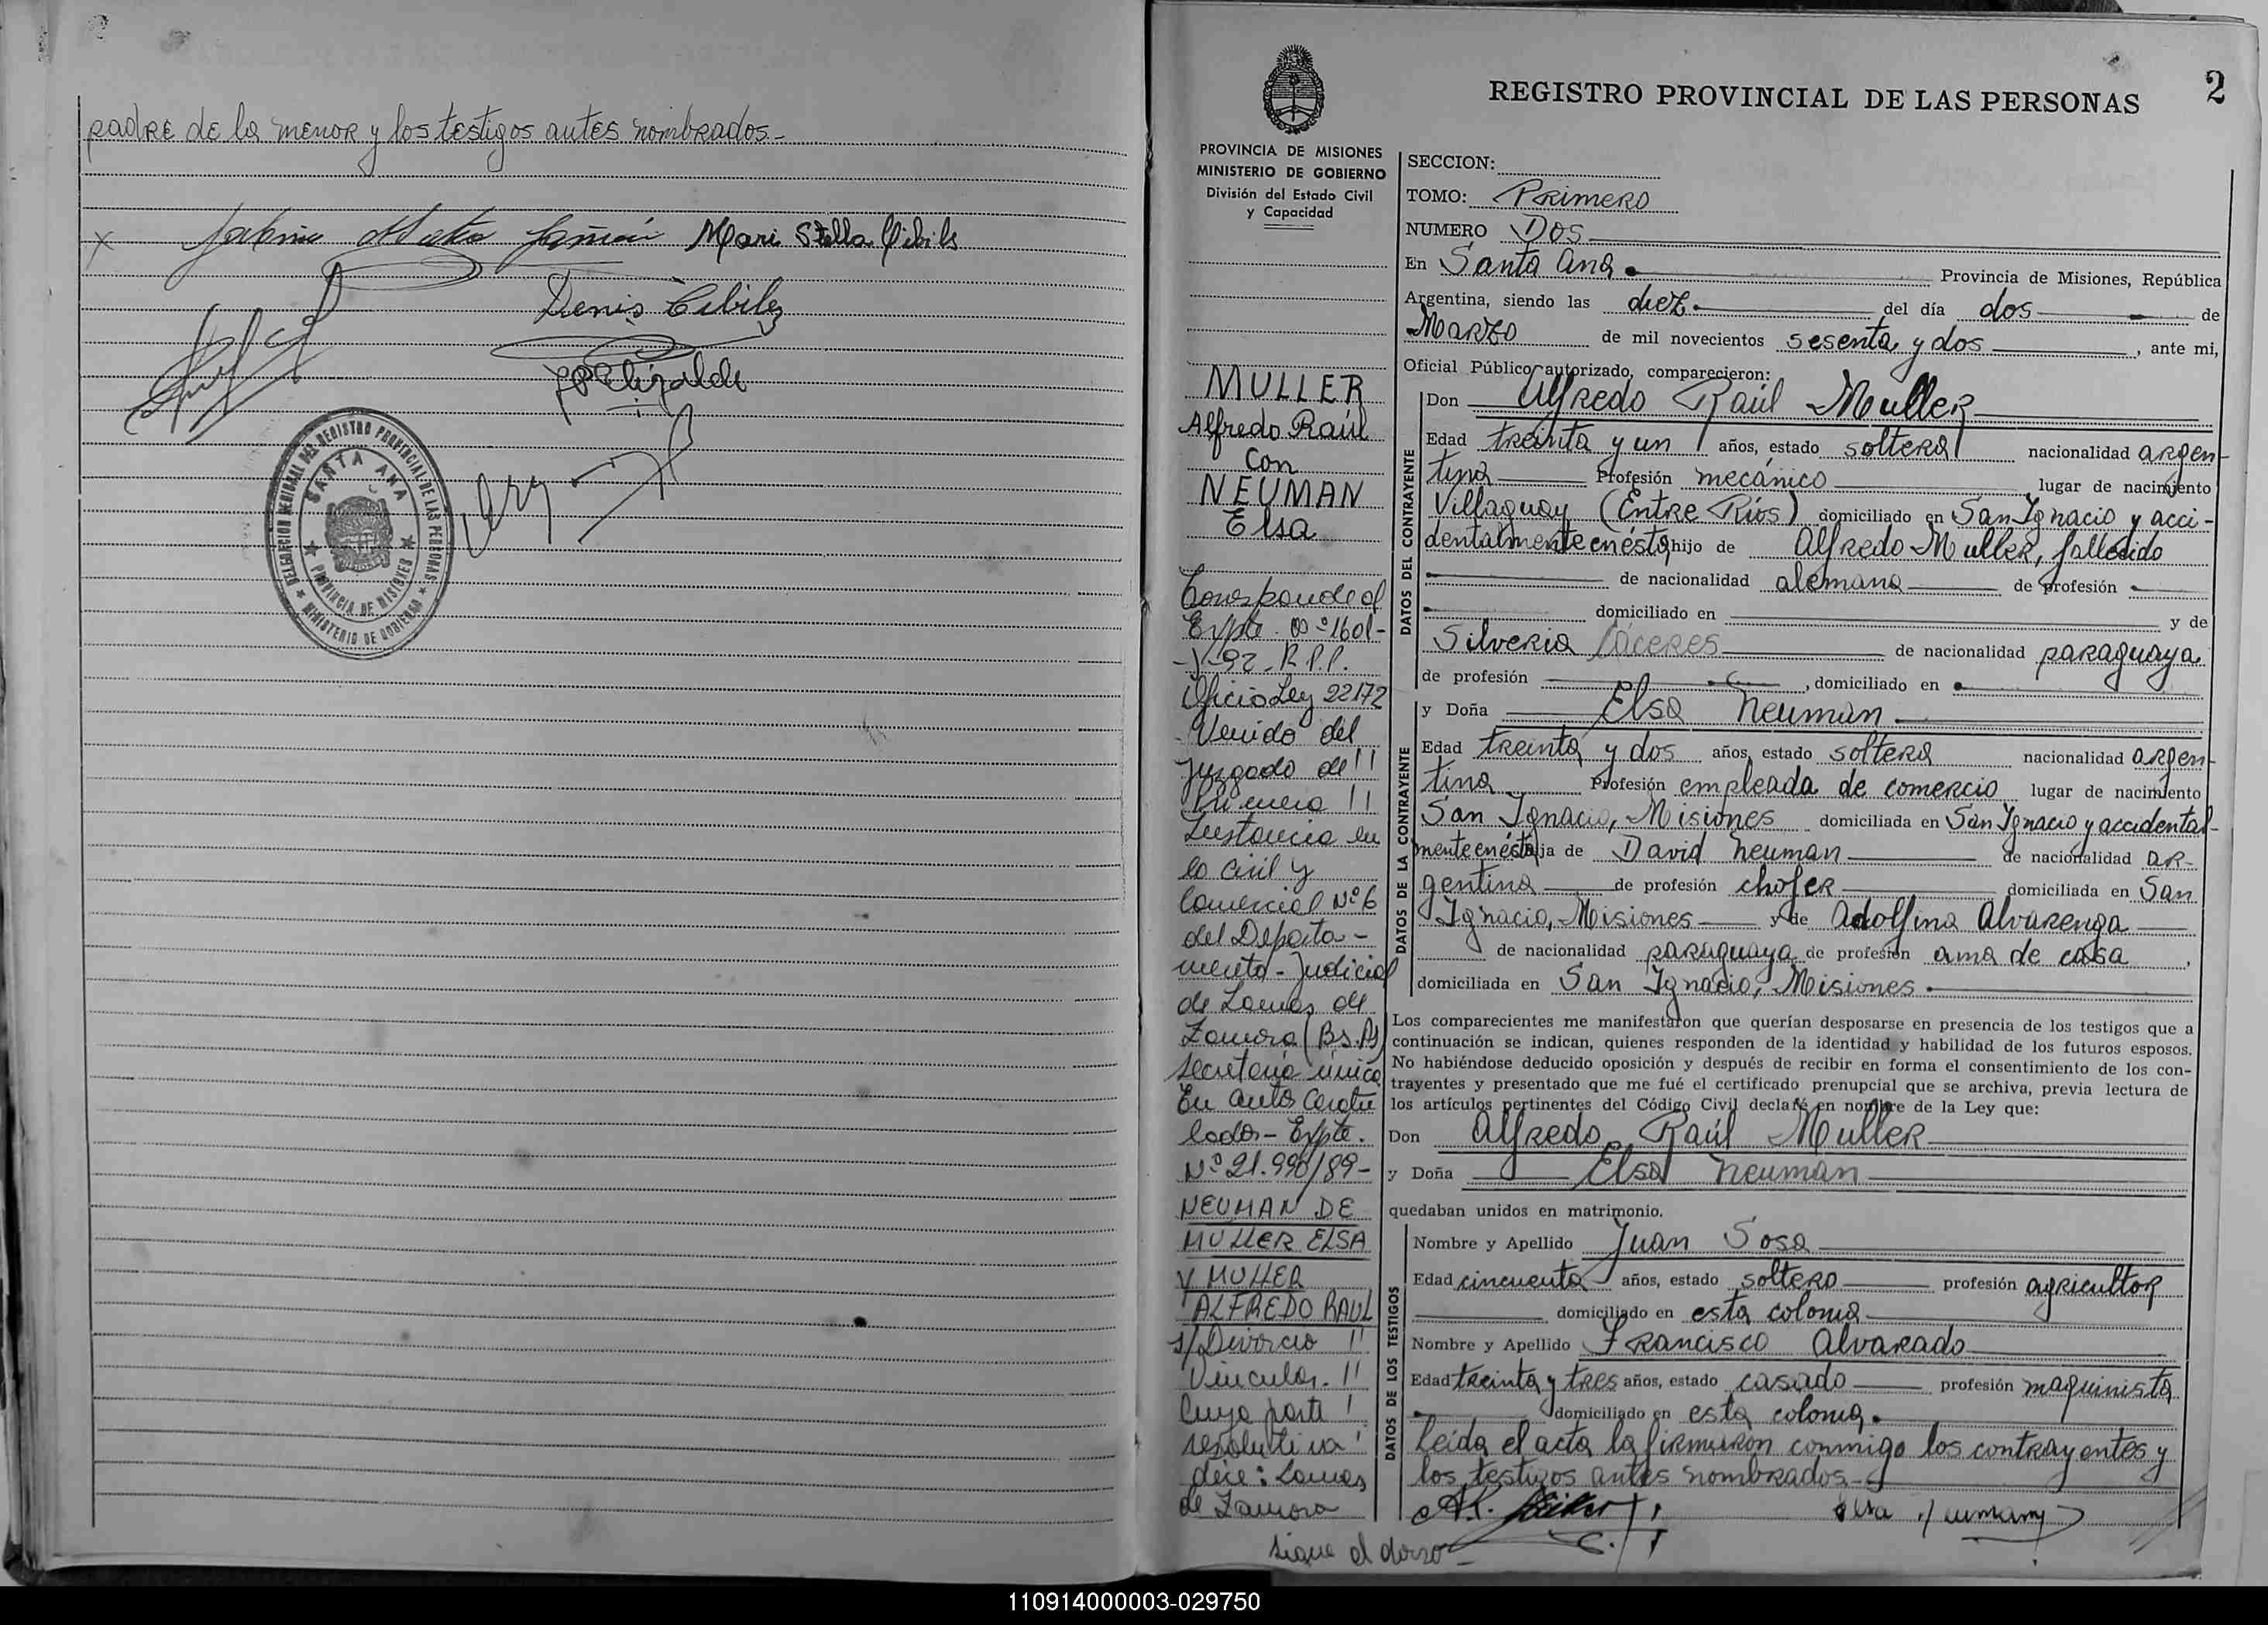 padre de la menor y los testigos antes nombrados.-
x
Mari Stella Cibils
Denis Cibils
DELEGACION SECCIONAL DEL REGISTRO PROVINCIAL DE LAS PERSONAS
SANTA ANA
PROVINCIA DE MISIONES
MINISTERIO DE GOBIERNO
2
REGISTRO PROVINCIAL DE LAS PERSONAS
PROVINCIA DE MISIONES
MINISTERIO DE GOBIERNO
División del Estado Civil
y Capacidad
MULLER
Alfredo Raúl
Con
NEUMAN
Elsa
Corresponde al
Expte. Nº 1601-
-V-92-R.P.P.
Oficio Ley 22172
Venido del
Juzgado de
Primera
Instancia en
lo Civil y
Comercial Nº 6
del Departa-
mento-Judicial
de Lomas de
Zamora (Bs. As)
secretaria única
En autos caratu
lados- Expte.
Nº 21.990/89-
NEUMAN DE
MULLER ELSA
Y MULLER
ALFREDO RAUL
s/ Divorcio
Vincular.
Cuya parte
resolutiva
dice: Lomas
de Zamora
sigue al dorso-
SECCION:
TOMO: Primero
NUMERO Dos
En Santa Ana. Provincia de Misiones, República
Argentina, siendo las diez del día dos de
Marzo de mil novecientos sesenta y dos, ante mi,
Oficial Público autorizado, comparecieron:
DATOS DEL CONTRAYENTE
Don Alfredo Raúl Muller
Edad treinta y un años, estado soltero nacionalidad argen-
tina Profesión mecánico lugar de nacimiento
Villaguay (Entre Ríos) domiciliado en San Ignacio y acci-
dentalmente en ésta hijo de Alfredo Muller, fallecido
de nacionalidad alemana de profesión
domiciliado en y de
Silveria Cáceres de nacionalidad paraguaya
de profesión , domiciliado en
DATOS DE LA CONTRAYENTE
y Doña Elsa Neuman
Edad treinta y dos años, estado soltera nacionalidad argen-
tina Profesión empleada de comercio lugar de nacimiento
San Ignacio, Misiones domiciliada en San Ignacio y accidental-
mente en ésta ja de David Neuman de nacionalidad ar-
gentina de profesión chofer domiciliada en San
Ignacio, Misiones y de Adolfina Alvarenga
de nacionalidad paraguaya de profesión ama de casa,
domiciliada en San Ignacio, Misiones.
Los comparecientes me manifestaron que querían desposarse en presencia de los testigos que a
continuación se indican, quienes responden de la identidad y habilidad de los futuros esposos.
No habiéndose deducido oposición y después de recibir en forma el consentimiento de los con-
trayentes y presentado que me fué el certificado prenupcial que se archiva, previa lectura de
los artículos pertinentes del Código Civil declaré en nombre de la Ley que:
Don Alfredo Raúl Muller
y Doña Elsa Neuman
quedaban unidos en matrimonio.
DATOS DE LOS TESTIGOS
Nombre y Apellido Juan Sosa
Edad cincuenta años, estado soltero profesión agricultor
domiciliado en esta colonia
Nombre y Apellido Francisco Alvarado
Edad treinta y tres años, estado casado profesión maquinista
domiciliado en esta colonia.
Leída el acta la firmaron conmigo los contrayentes y
los testigos antes nombrados.-
Elsa Neumann
110914000003-029750